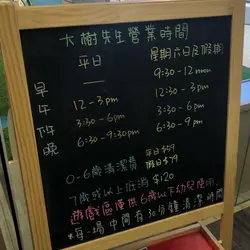 大樹先生營業時間
平日 星期六日及假期
早 — 9:30-12nn
午 12-3pm 12:30-3pm
下午 3:30-6pm 3:30-6pm
晚 6:30-9:30pm 6:30-9pm
0-6歲清潔費 平日$59
假日$79
7歲或以上低消 $120
遊戲區僅供6歲以下幼兒使用
*每場中間有30分鐘清潔時間